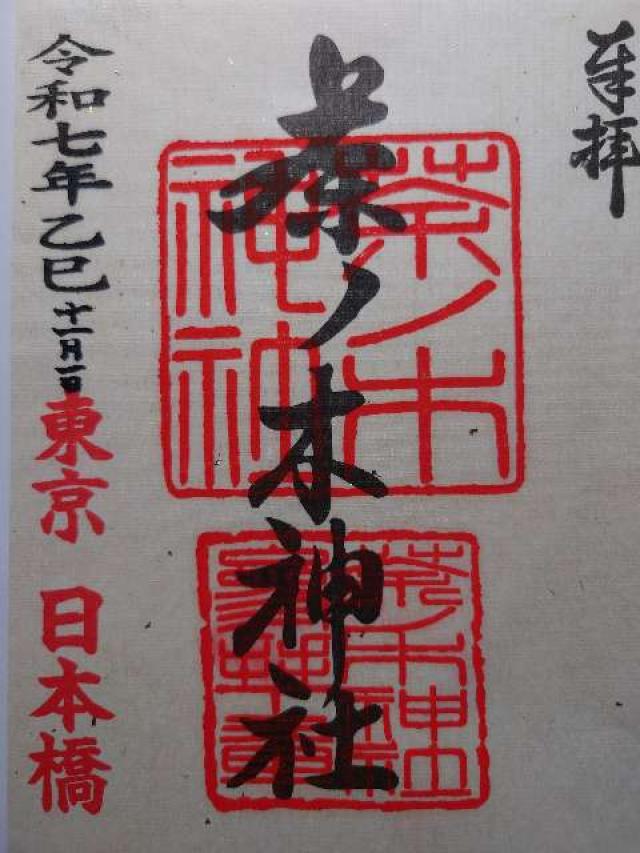 奉拝
茶ノ木神社
茶ノ木
神社
茶ノ木神社
令和七年乙巳十一月一日 東京 日本橋